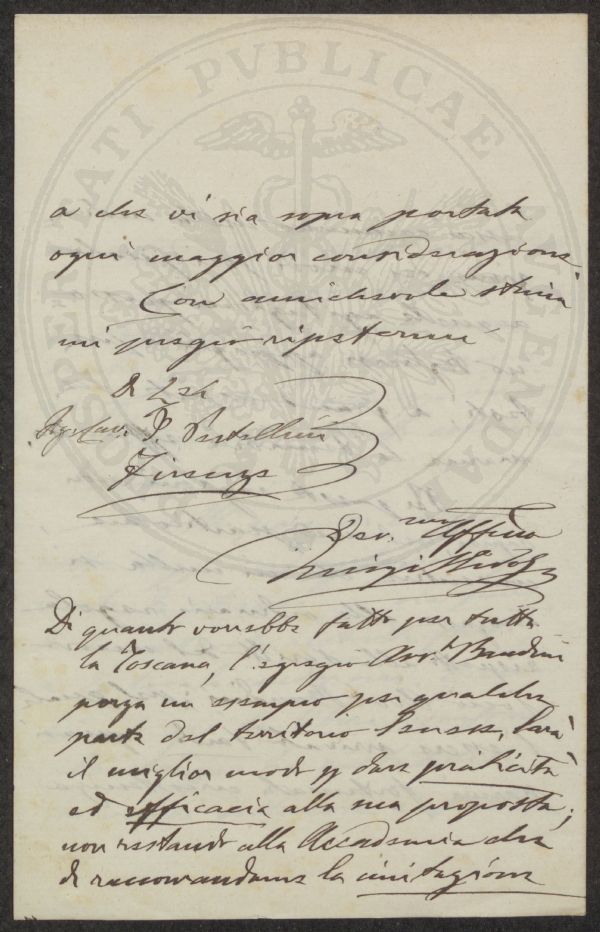 PROSPERITATI PUBLICAE AUGENDAE
a che vi sia sopra portata
ogni maggior considerazione
Con amichevole stima
mi pregio ripetermi
Di Lei
Sig. Cav. P.
Firenze
Dev.mo Aff.mo
Luigi
Di quanto vorrebbe fatto per tutta
la Toscana, l'egregio Avv.to
porga un esempio per qualche
parte del territorio Senese, sarà
il miglior modo p dare praticità
ed efficacia alla sua proposta;
non restando alla Accademia che
di raccomandarne la imitazione